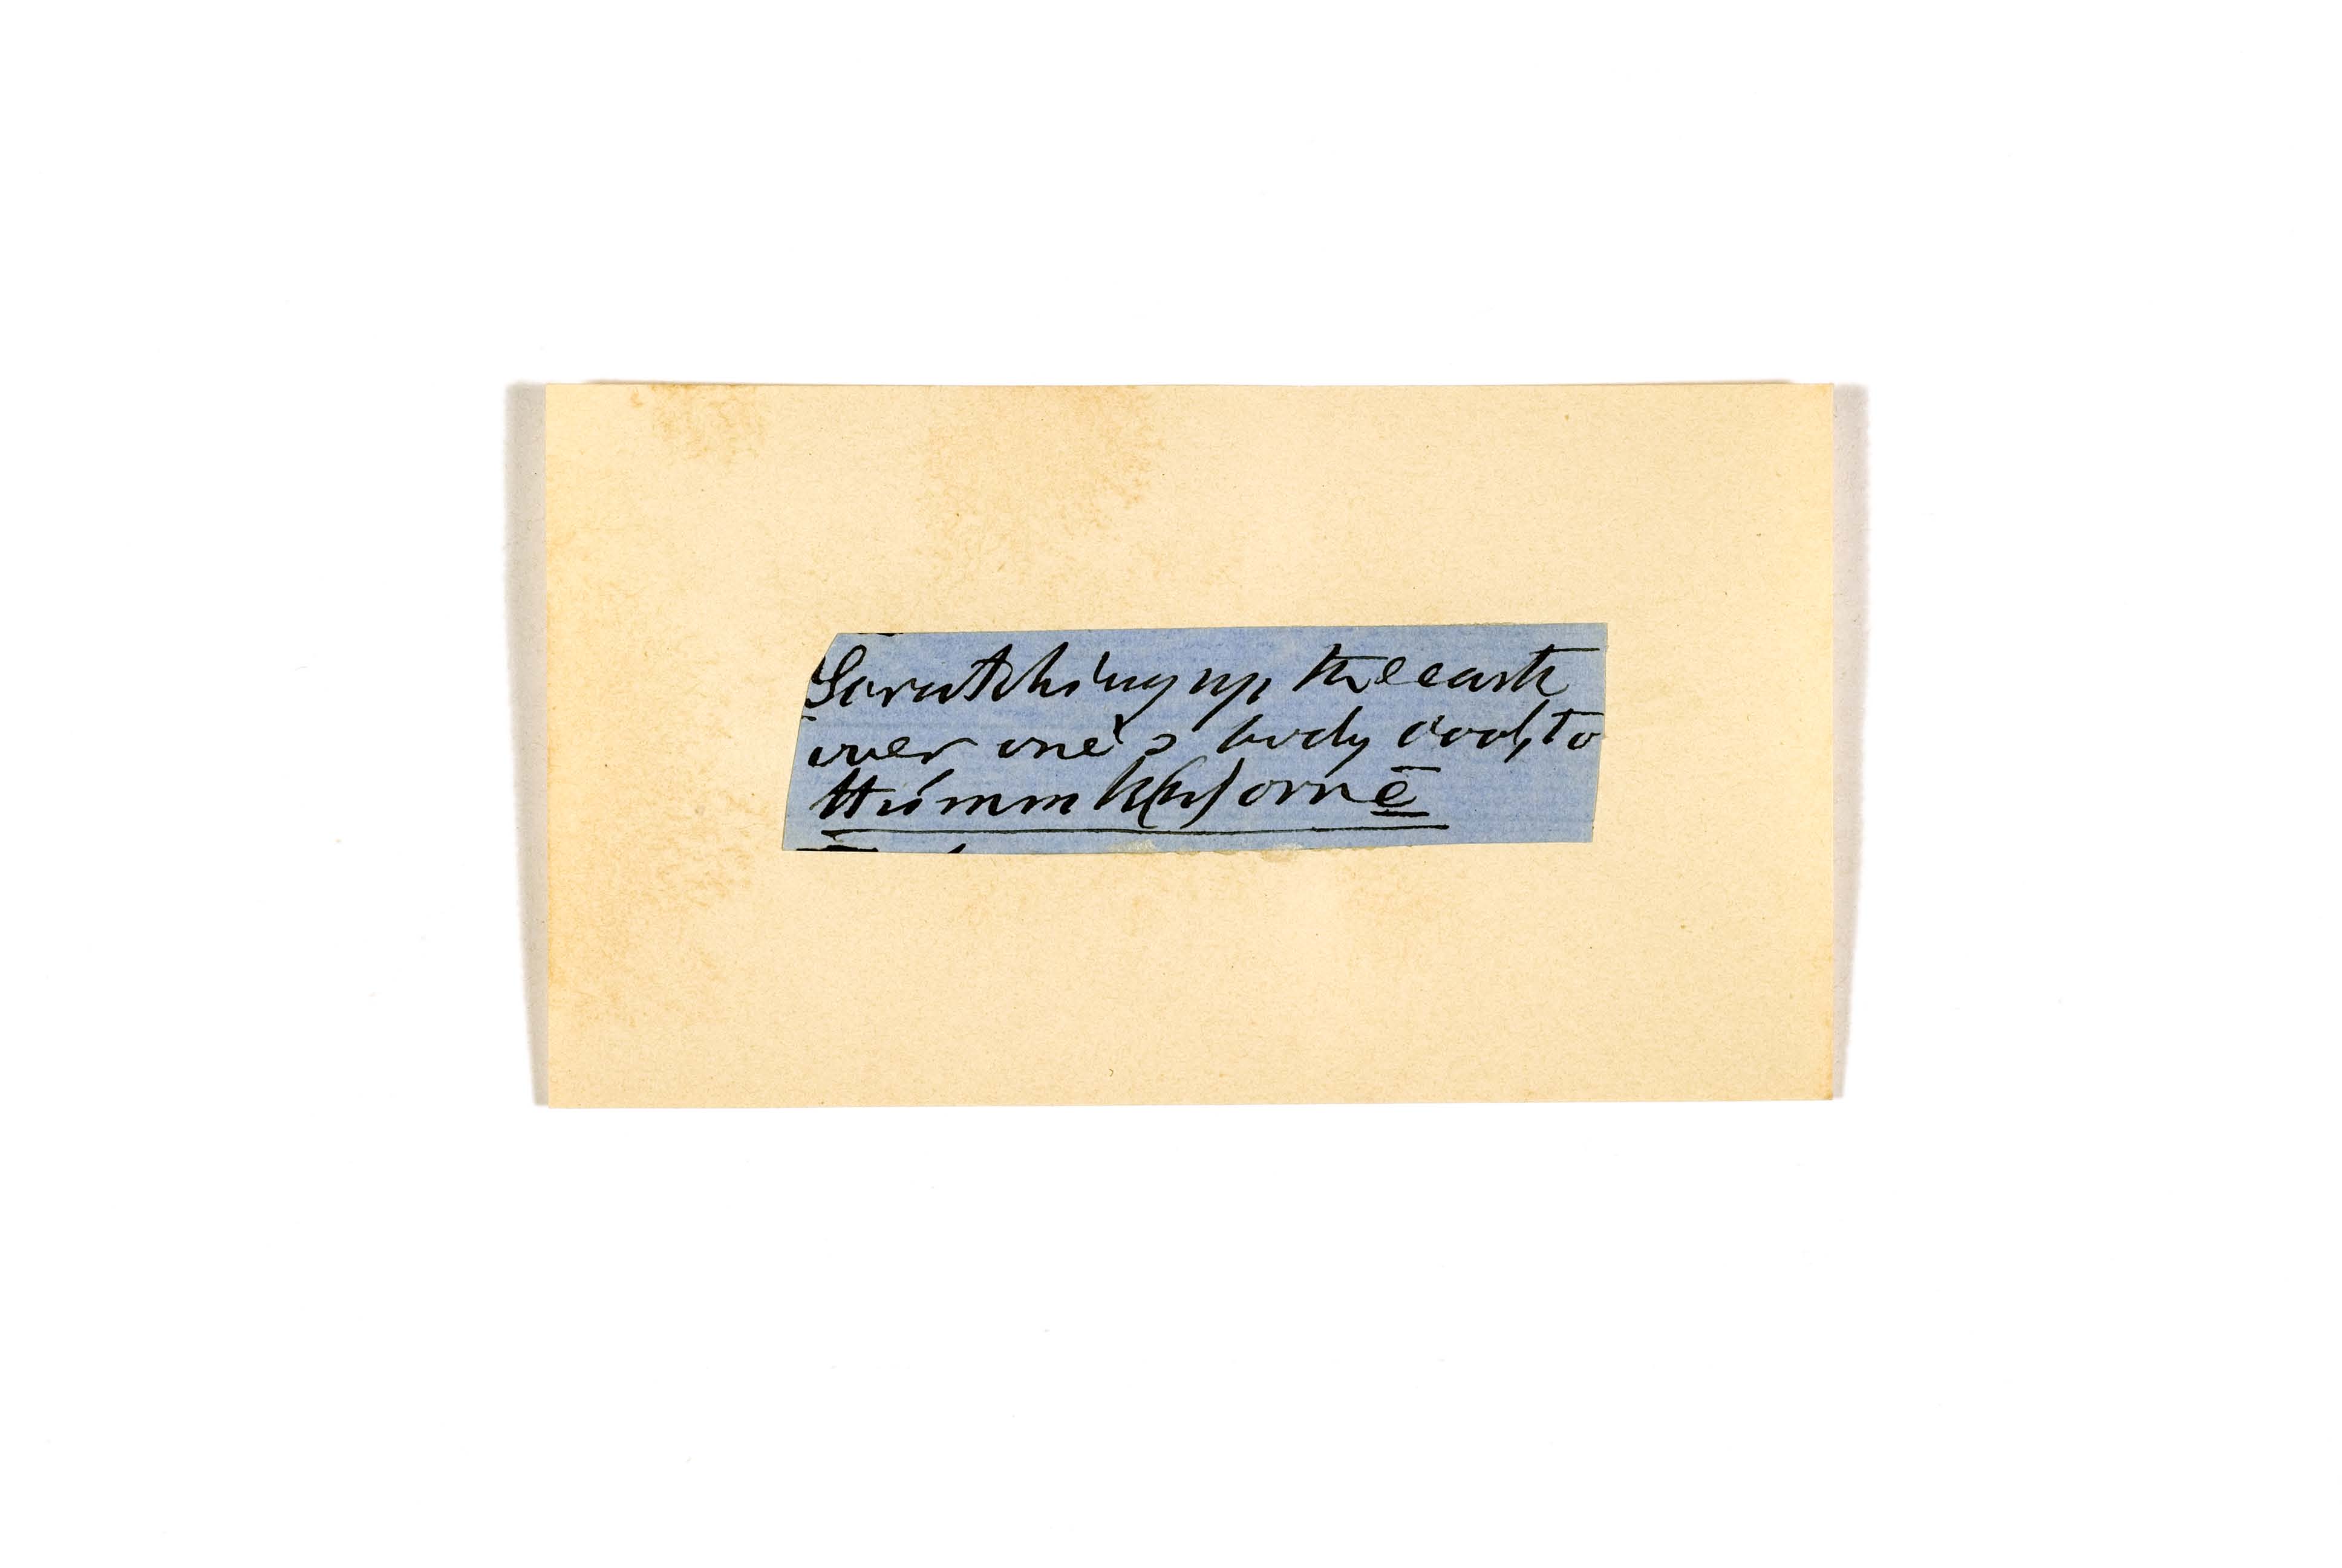 Scratching up the earth
over one's body cool, to
ttúmm k(h)ornē